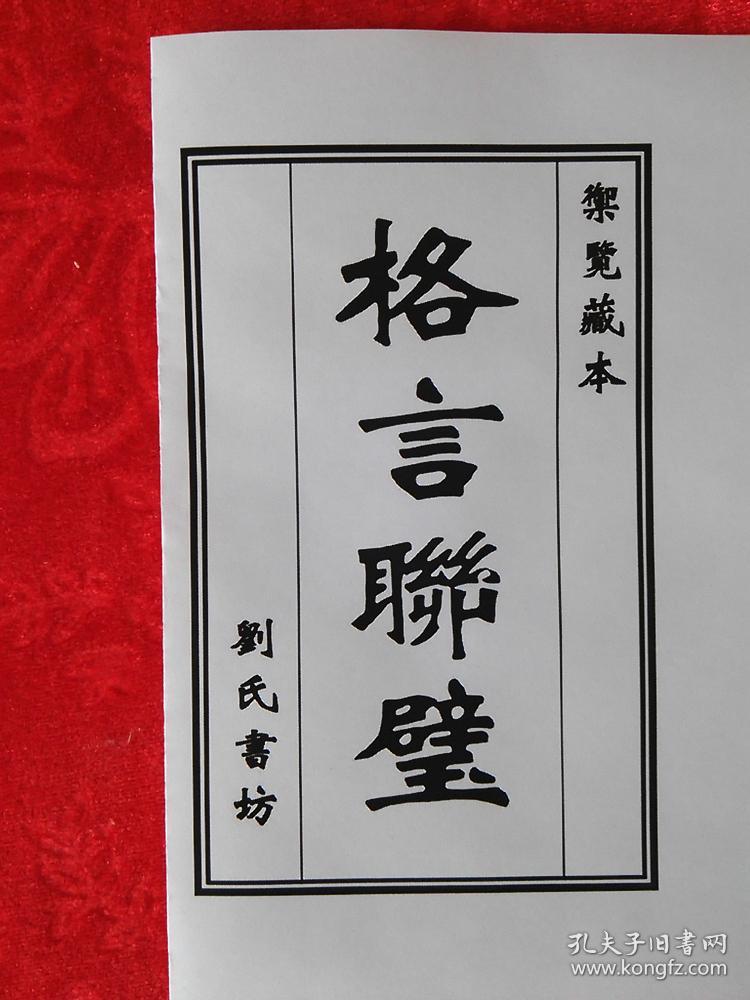 禦覽藏本
格言聯璧
劉氏書坊
孔夫子旧书网
www.kongfz.com